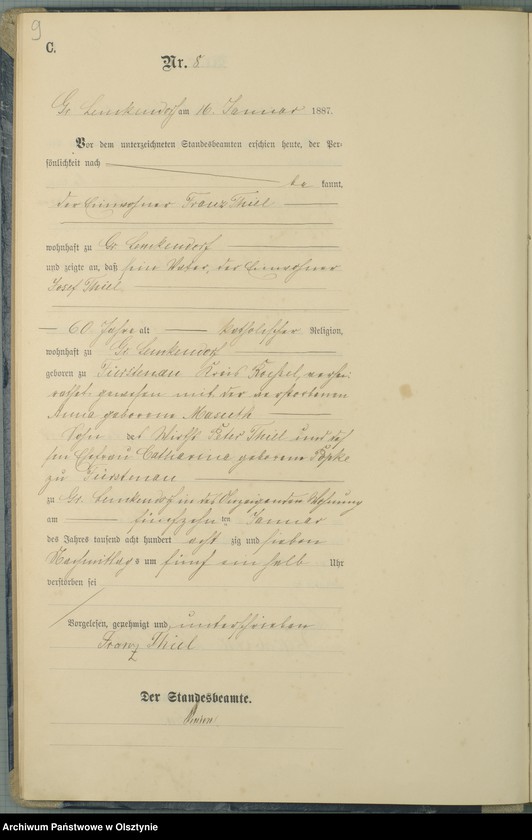 9
C.
Nr. 8
Gr. Lemkendorf am 16. Januar 1887.
Vor dem unterzeichneten Standesbeamten erschien heute, der Per-
sönlichkeit nach
be kannt,
der Einwohner Franz Thiel
wohnhaft zu Gr. Lemkendorf
und zeigte an, daß sein Vater, der Einwohner
Josef Thiel
60 Jahre alt katholischer Religion,
wohnhaft zu Gr. Lemkendorf
geboren zu Fürstenau Kreis Roessel, verhei-
rathet gewesen mit der verstorbenen
Anna geborene
Sohn des Wirths Peter Thiel und des-
sen Ehefrau Catharina geborene
zu Fürstenau
zu Gr. Lemkendorf in des Anzeigenden Wohnung
am fünfzehn ten Januar
des Jahres tausend acht hundert acht zig und sieben
Nachmittags um fünf ein halb Uhr
verstorben sei
Vorgelesen, genehmigt und unterschrieben
Franz Thiel
Der Standesbeamte.
Archiwum Państwowe w Olsztynie